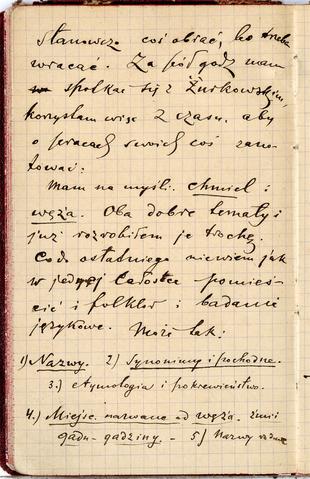 stanowczo coś obiać, bo trzeba
wracać. Za pół godz. mam
spotkać się z Żurkowskim,
korzystam więc z czasu, aby
o pracach swoich coś zano-
tować:
Mam na myśli: chmiel i
węża. Oba dobre tematy i
już rozrobiłem je trochę.
Co do ostatniego niewiem jak
w jednej całostce pomieś-
cić i folklor i badania
językowe. Może tak:
1) Nazwy. 2) Synonimy i pochodne.
3.) etymologia i pokrewieństwo.
4.) Miejsc. nazwane od węża. żmii
gadu-gadziny. - 5) Nazwy